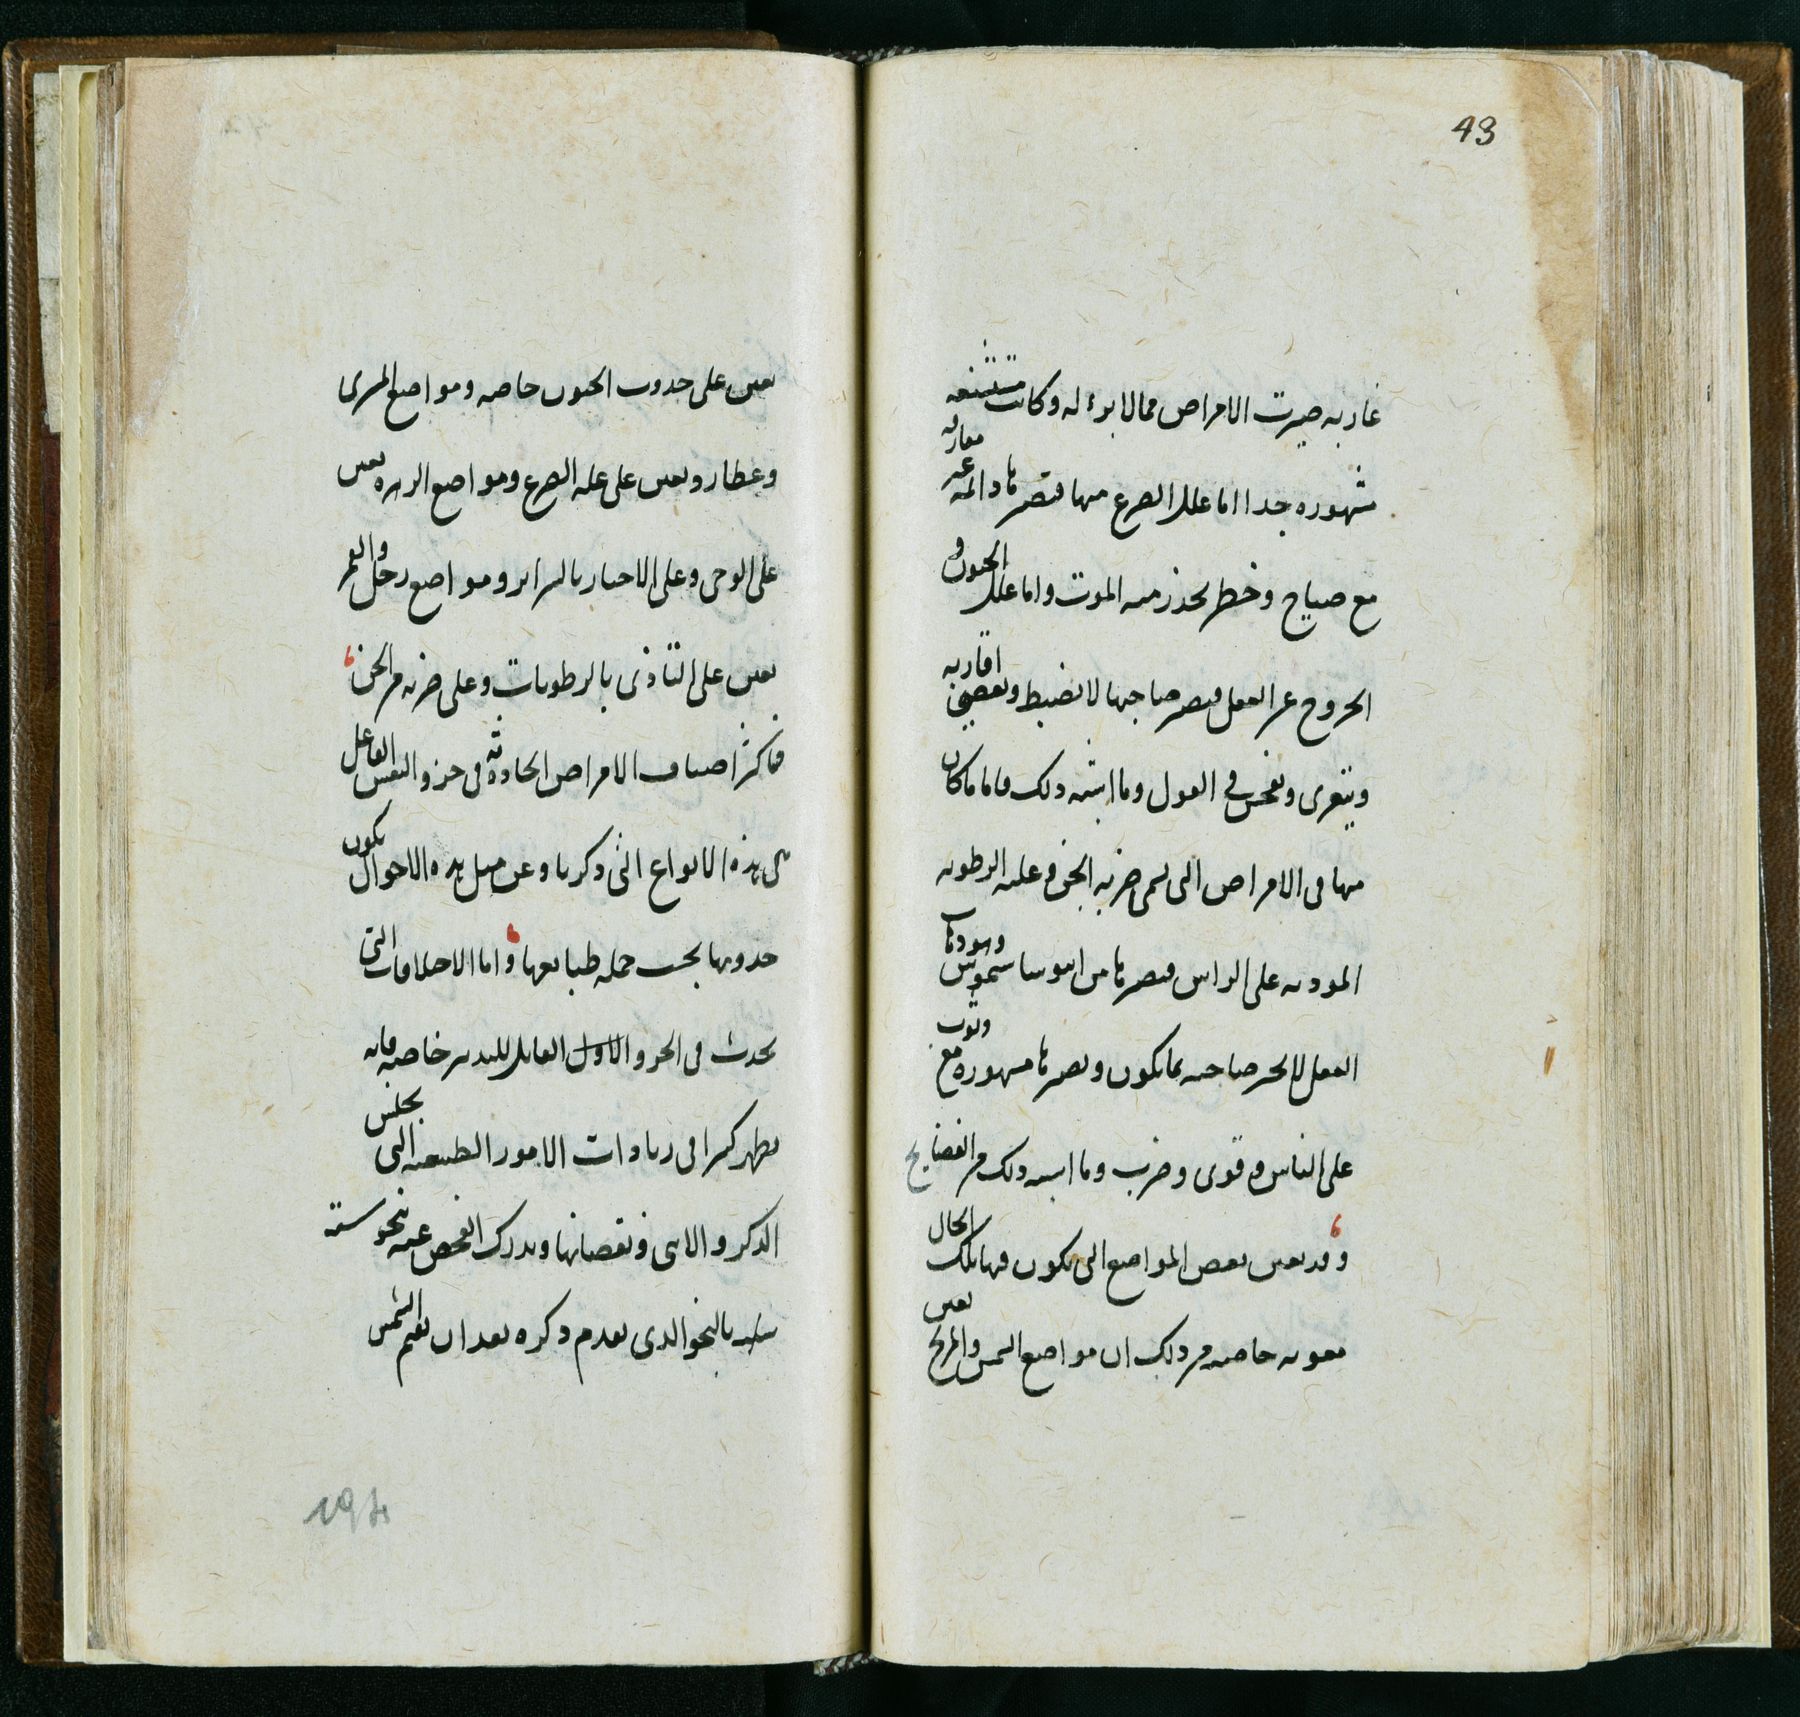 43
غاربه صيرت الامراض مما لا برء له وكانت مستشنعه
مشهوره جدا اما علل الصرع منها فتصيرها دائمه
مع صياح وخطر يحذر منه الموت واما علل الجنون و
الخروج عن العقل فيصير صاحبها لا ينضبط ويعصى اقاربه
ويتعرى ويفحش في القول وما اشبه ذلك فاما ما كان
منها في الامراض التي تسمى ضربه الجن وعلله الرطوبه
الموديه على الراس فيصيرها من
العقل لا يخبر صاحبه بما يكون ويصيرها مشهوره مع وثوب
على الناس وقوى وضرب وما اشبه ذلك من الفضايح
وقد يعين بعض المواضع التي يكون فيها تلك الحال
معونه خاصه من ذلك ان مواضع الشمس والمريخ يعين
يعين على حدوث الجنون خاصه ومواضع المشترى
وعطارد يعين على علة الصرع ومواضع الزهره يعين
على الوحى وعلى الاخبار بالسراير ومواضع زحل والقمر
يعين على التاذى بالرطوبات وعلى ضربه من الجن
فاكثر اصناف الامراض الحادثه فى جزو النفس الفاعل
هى هذه الانواع التى ذكرنا وعن مثل هذه الاحوال يكون
حدوثها بحسب جمله طبايعها واما الاختلافات التى
تحدث فى الجزو الاول القابل للتدبير خاصه فانه
يظهر كثيرا فى زيادات الامور الطبيعيه التى بجنس
الذكر والانثى ونقصانها ويدرك الفحص عنه بنحو
بالنحو الذى تقدم ذكره بعد ان نقيم الشمس
194